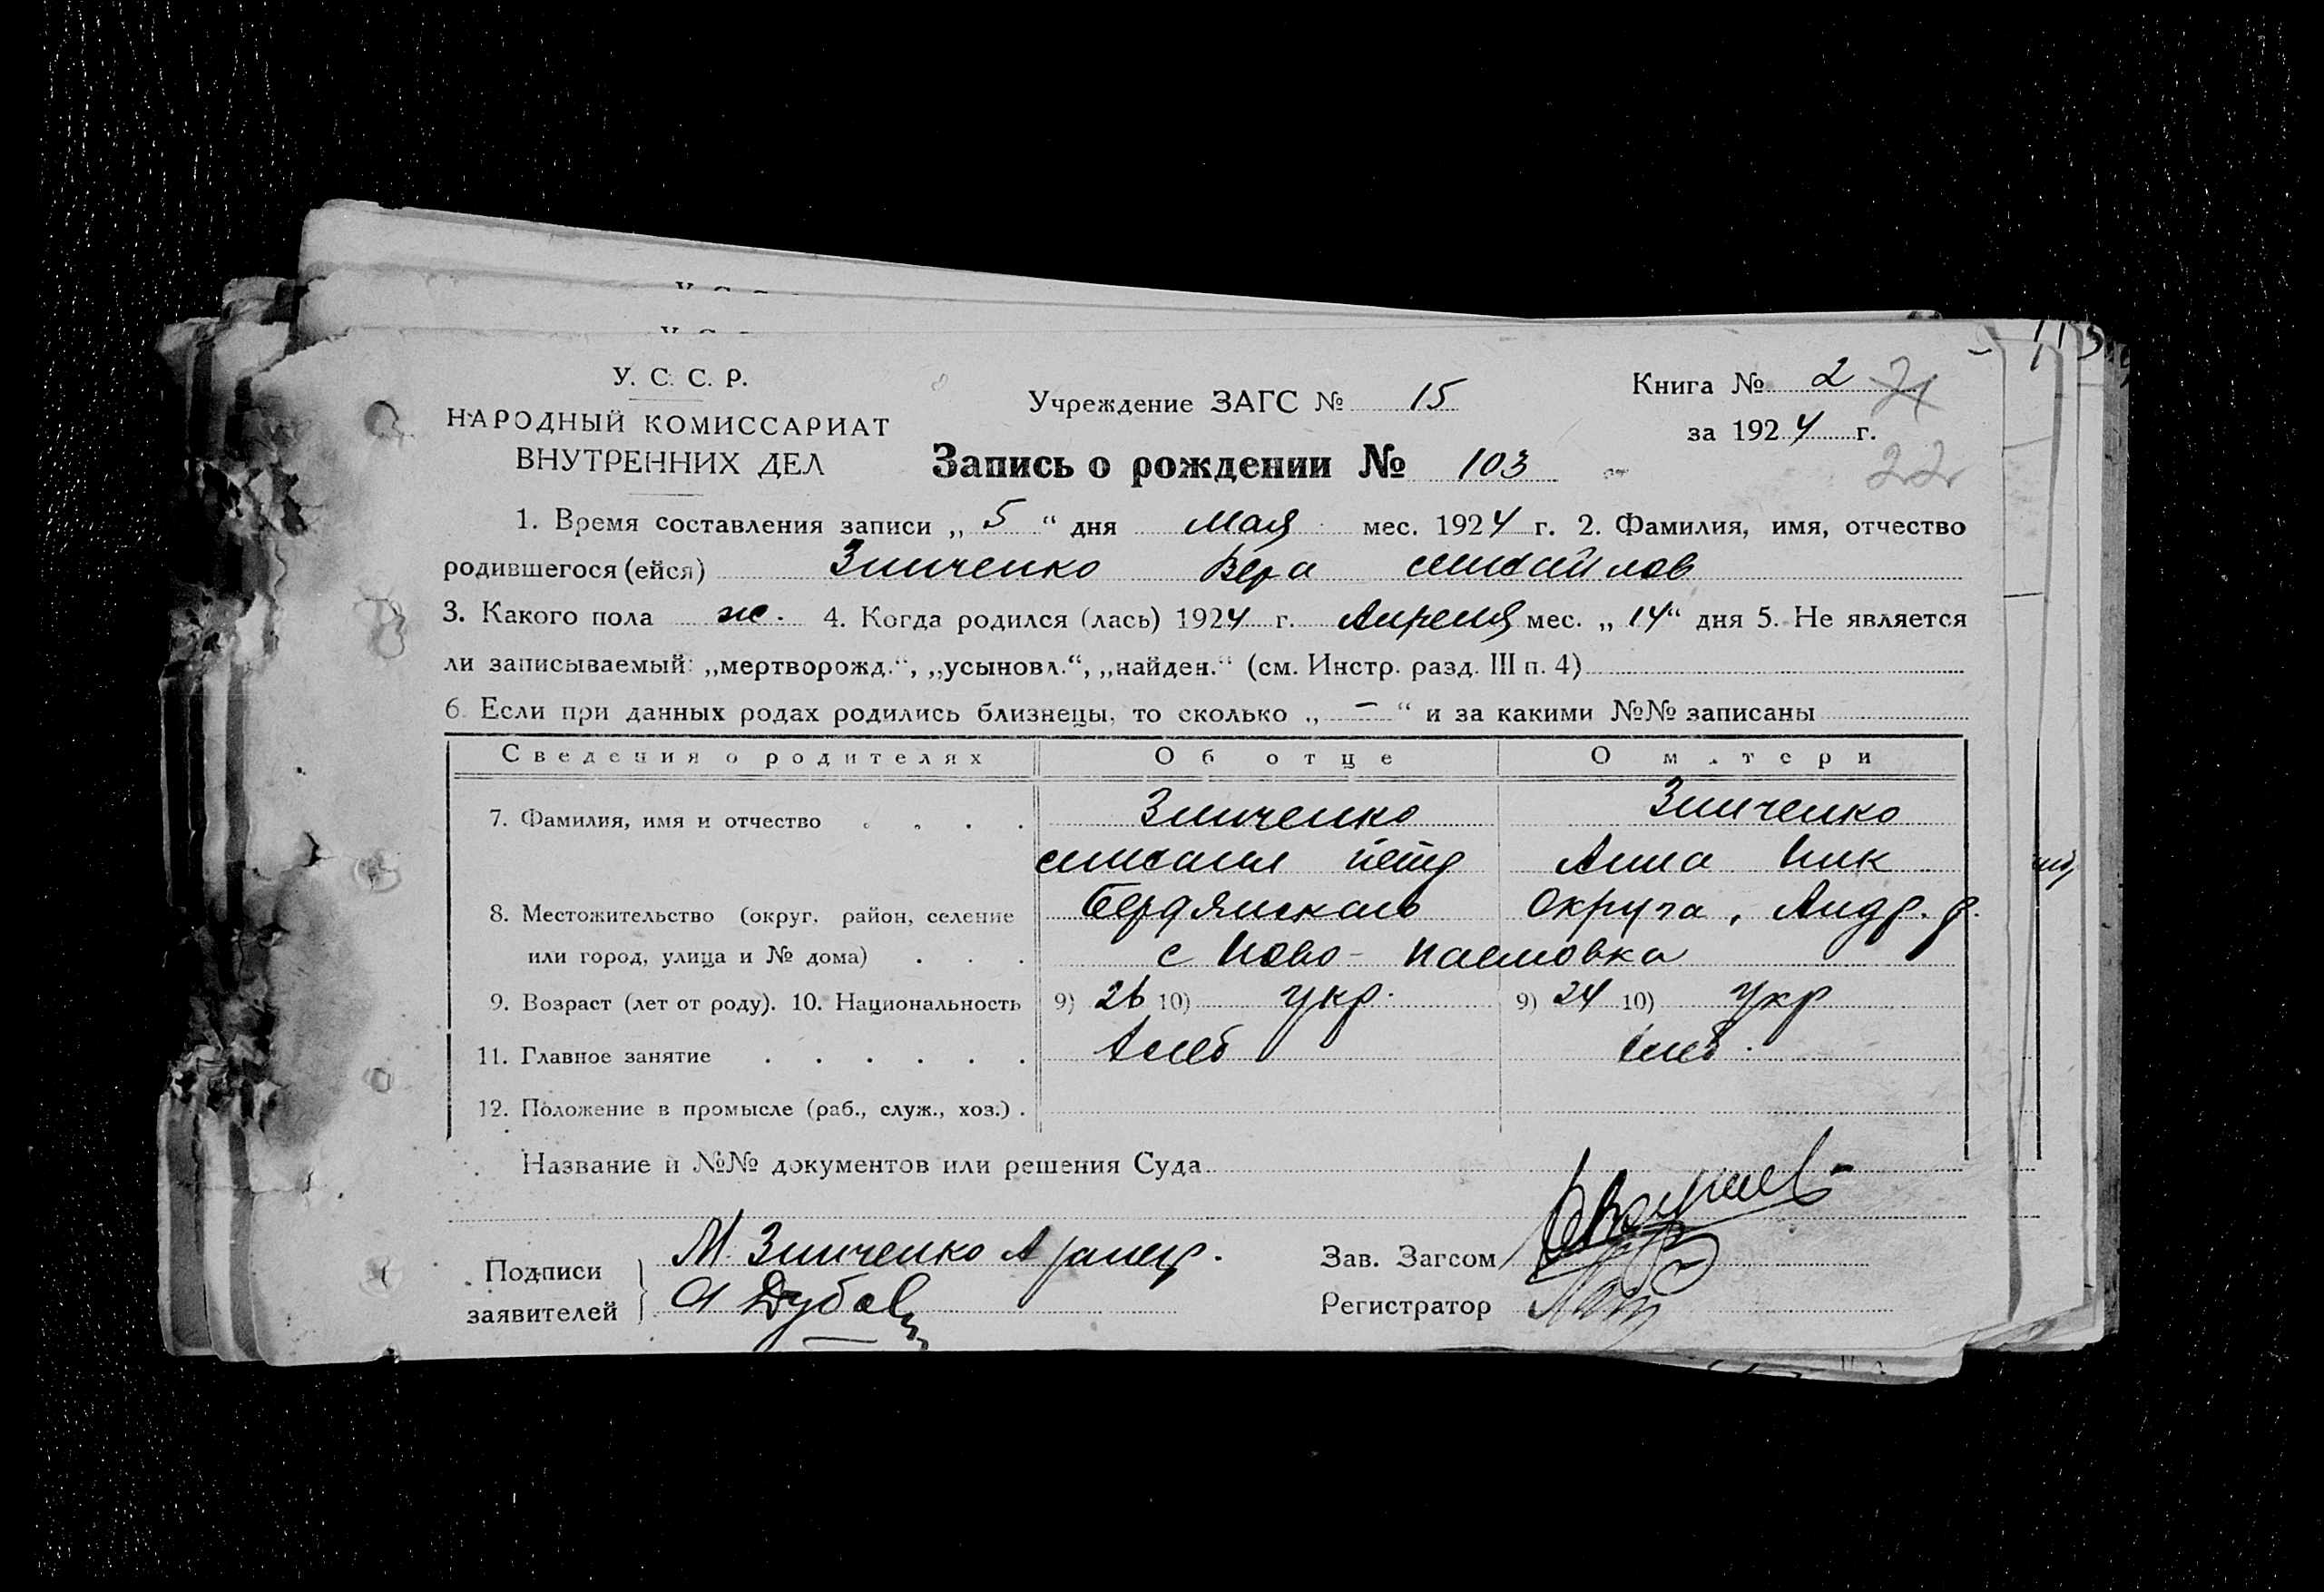 У. С. С. Р.
НАРОДНЫЙ КОМИССАРИАТ
ВНУТРЕННИХ ДЕЛ
Учреждение ЗАГС № 15
Книга № 2 21
за 1924 г.
22
Запись о рождении № 103
1. Время составления записи „ 5 “ дня Мая мес. 1924 г. 2. Фамилия, имя, отчество
родившегося (ейся) Зинченко Вера Михайлов
3. Какого пола ж. 4. Когда родился (лась) 1924 г. Апреля мес. „ 14 “ дня 5. Не является
ли записываемый: „мертворожд.“, „усыновл.“, „найден.“ (см. Инстр. разд. III п. 4)
6. Если при данных родах родились близнецы, то сколько „ — “ и за какими №№ записаны
Сведения о родителях Об отце О матери
7. Фамилия, имя и отчество . . . . Зинченко Зинченко
Михаил Петр Анна Ник
8. Местожительство (округ, район, селение Бердянскаго Округа, Андр. р.
или город, улица и № дома) . . . с Ново-Павловка
9. Возраст (лет от роду). 10. Национальность 9) 26 10) укр. 9) 24 10) укр
11. Главное занятие . . . . . . Хлеб Хлеб.
12. Положение в промысле (раб., служ., хоз.) .
Название и №№ документов или решения Суда
Подписи
заявителей
М. Зинченко А
Дубов
Зав. Загсом
Регистратор